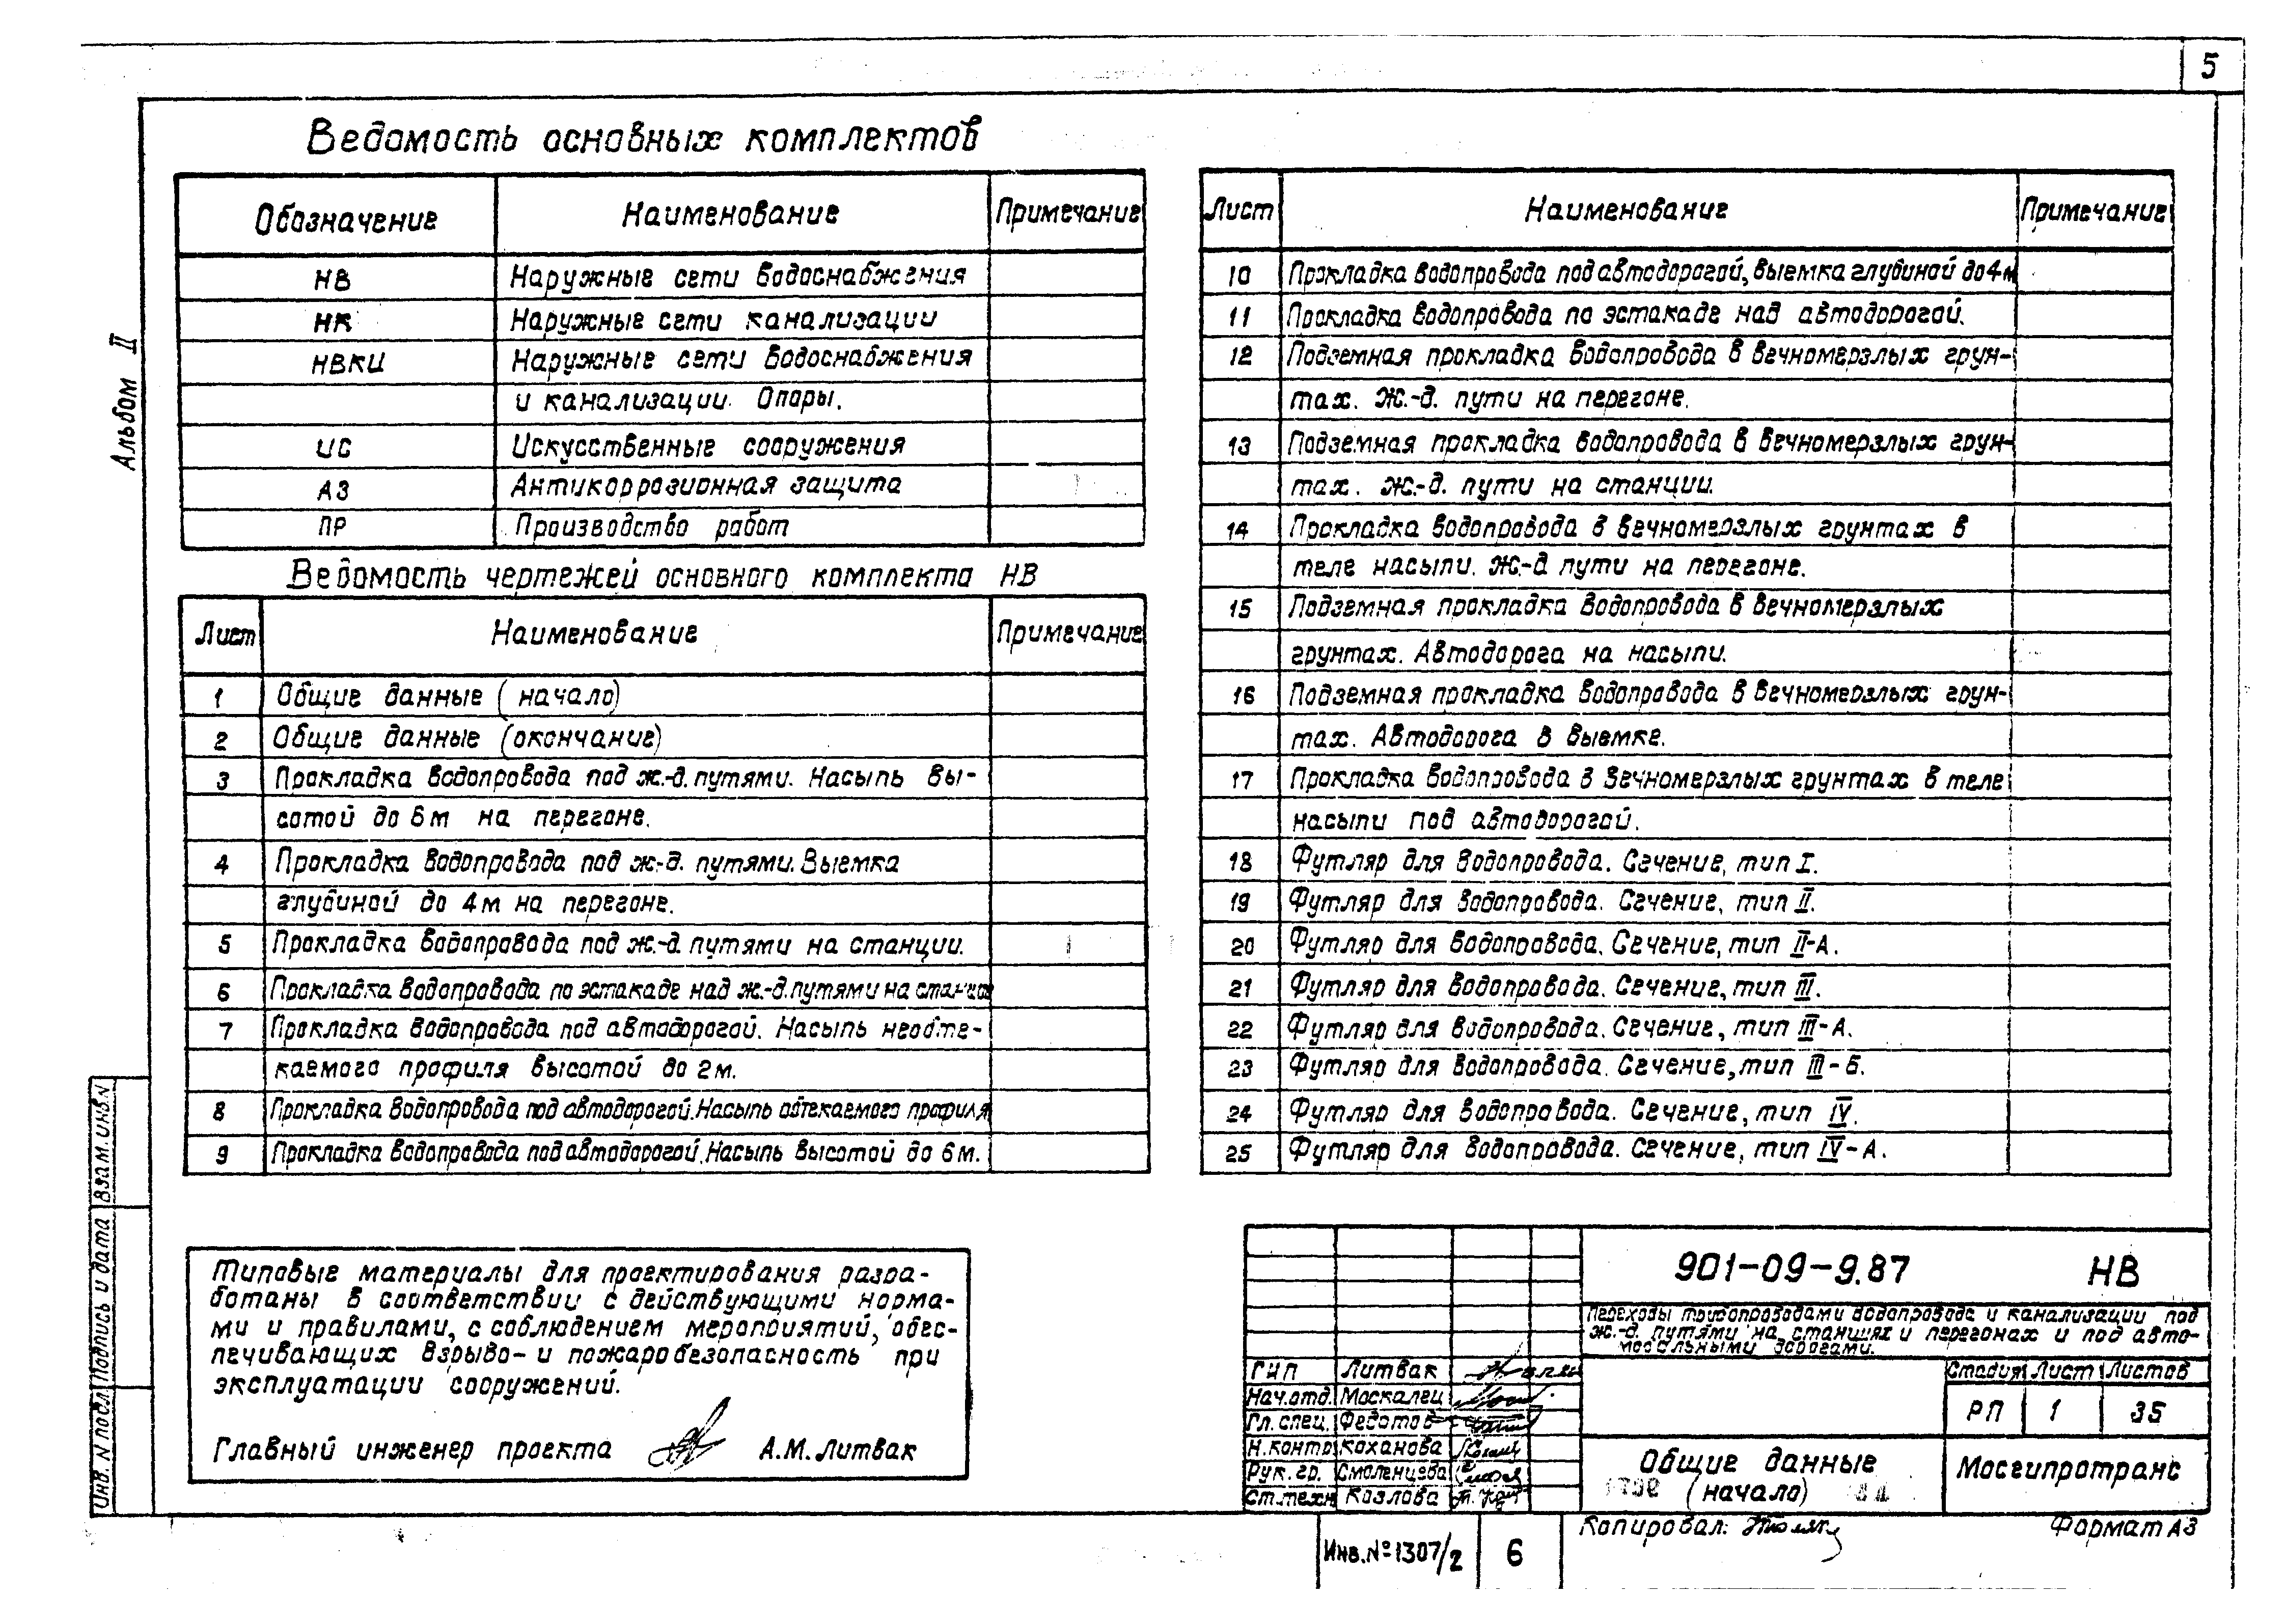 5
Альбом II
Ведомость основных комплектов
Обозначение Наименование Примечание
НВ Наружные сети водоснабжения
НК Наружные сети канализации
НВКИ Наружные сети водоснабжения
и канализации. Опоры.
ИС Искусственные сооружения
АЗ Антикоррозионная защита
ПР Производство работ
Ведомость чертежей основного комплекта НВ
Лист Наименование Примечание
1 Общие данные (начало)
2 Общие данные (окончание)
3 Прокладка водопровода под ж.-д. путями. Насыпь вы-
сотой до 6 м на перегоне.
4 Прокладка водопровода под ж.-д. путями. Выемка
глубиной до 4 м на перегоне.
5 Прокладка водопровода под ж.-д. путями на станции.
6 Прокладка водопровода по эстакаде над ж.-д. путями на станции
7 Прокладка водопровода под автодорогой. Насыпь необте-
каемого профиля высотой до 2 м.
8 Прокладка водопровода под автодорогой. Насыпь обтекаемого профиля
9 Прокладка водопровода под автодорогой. Насыпь высотой до 6 м.
Лист Наименование Примечание
10 Прокладка водопровода под автодорогой, выемка глубиной до 4 м
11 Прокладка водопровода по эстакаде над автодорогой.
12 Подземная прокладка водопровода в вечномерзлых грун-
тах. Ж.-д. пути на перегоне.
13 Подземная прокладка водопровода в вечномерзлых грун-
тах. Ж.-д. пути на станции.
14 Прокладка водопровода в вечномерзлых грунтах в
теле насыпи. Ж.-д пути на перегоне.
15 Подземная прокладка водопровода в вечномерзлых
грунтах. Автодорога на насыпи.
16 Подземная прокладка водопровода в вечномерзлых грун-
тах. Автодорога в выемке.
17 Прокладка водопровода в вечномерзлых грунтах в теле
насыпи под автодорогой.
18 Футляр для водопровода. Сечение, тип I.
19 Футляр для водопровода. Сечение, тип II.
20 Футляр для водопровода. Сечение, тип II-А.
21 Футляр для водопровода. Сечение, тип III.
22 Футляр для водопровода. Сечение, тип III-А.
23 Футляр для водопровода. Сечение, тип III-Б.
24 Футляр для водопровода. Сечение, тип IV.
25 Футляр для водопровода. Сечение, тип IV-А.
Типовые материалы для проектирования разра-
ботаны в соответствии с действующими норма-
ми и правилами, с соблюдением мероприятий, обес-
печивающих взрыво- и пожаробезопасность при
эксплуатации сооружений.
Главный инженер проекта А.М. Литвак
Инв. N подл. Подпись и дата Взам. инв. N
901-09-9.87 НВ
Переходы трубопроводами водопровода и канализации под
ж.-д. путями на станциях и перегонах и под авто-
мобильными дорогами.
Стадия Лист Листов
РП 1 35
ГИП Литвак
Нач.отд. Москалец
Гл. спец. Федотов
Н.контр Коханова
Рук. гр. Смоленцева
Ст.техн Козлова
Общие данные
(начало)
Мосгипротранс
Копировал:
Формат А3
Инв.№1307/2 6